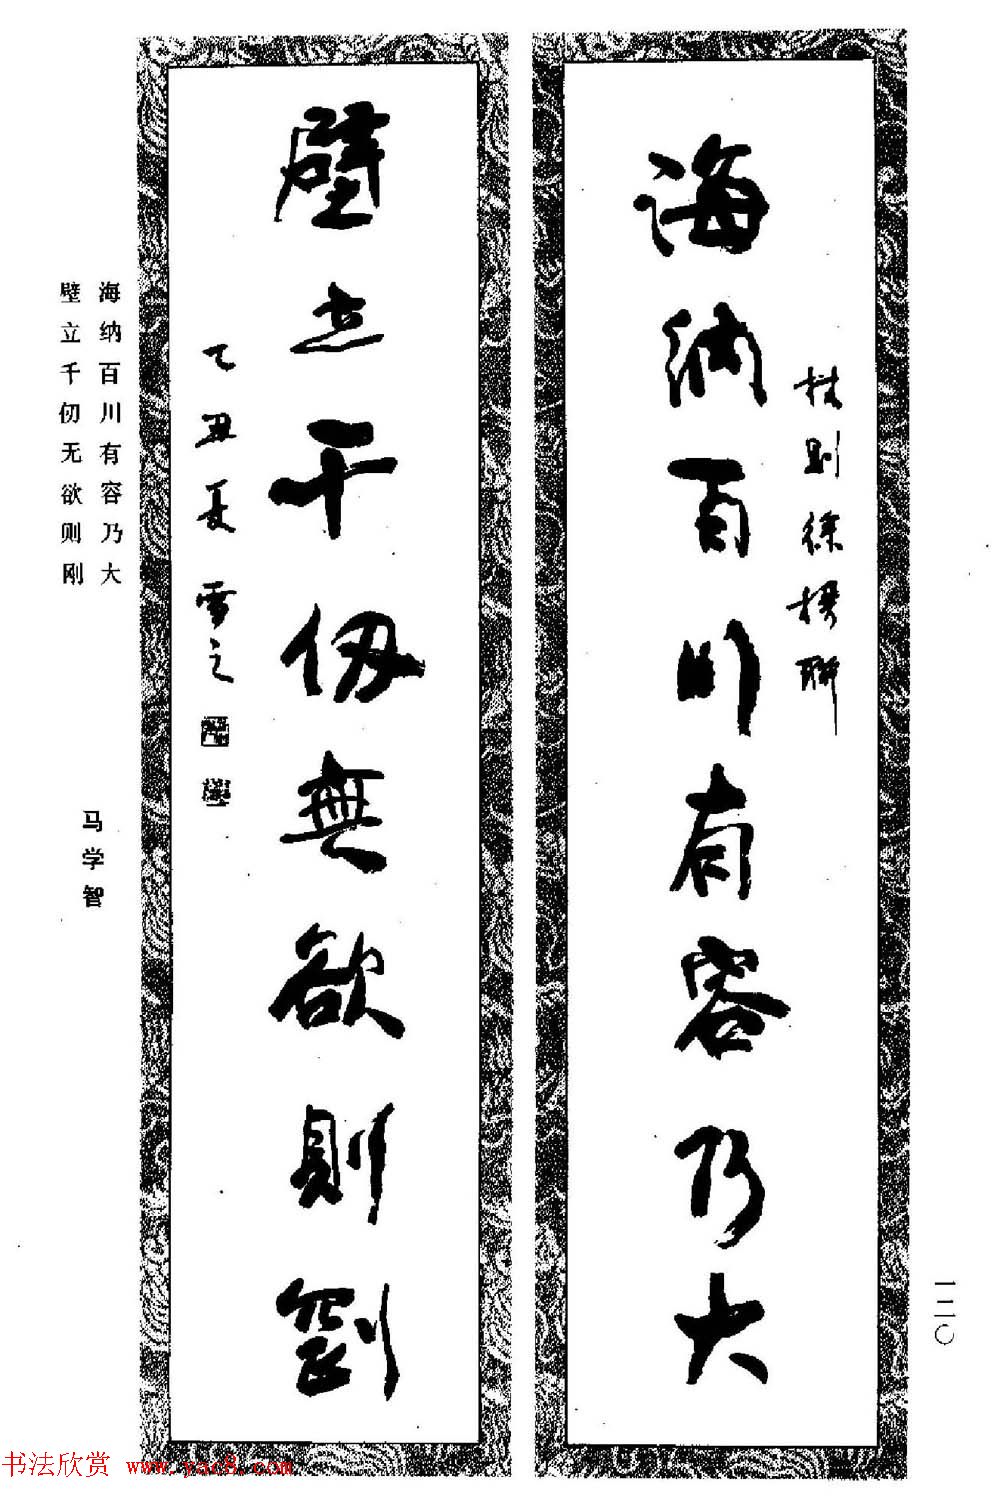 海纳百川有容乃大
林则徐楹聯
壁立千仞無欲则刚
乙丑夏雪之
海纳百川有容乃大
壁立千仞无欲则刚
马学智
一二〇
书法欣赏 www.yac8.com